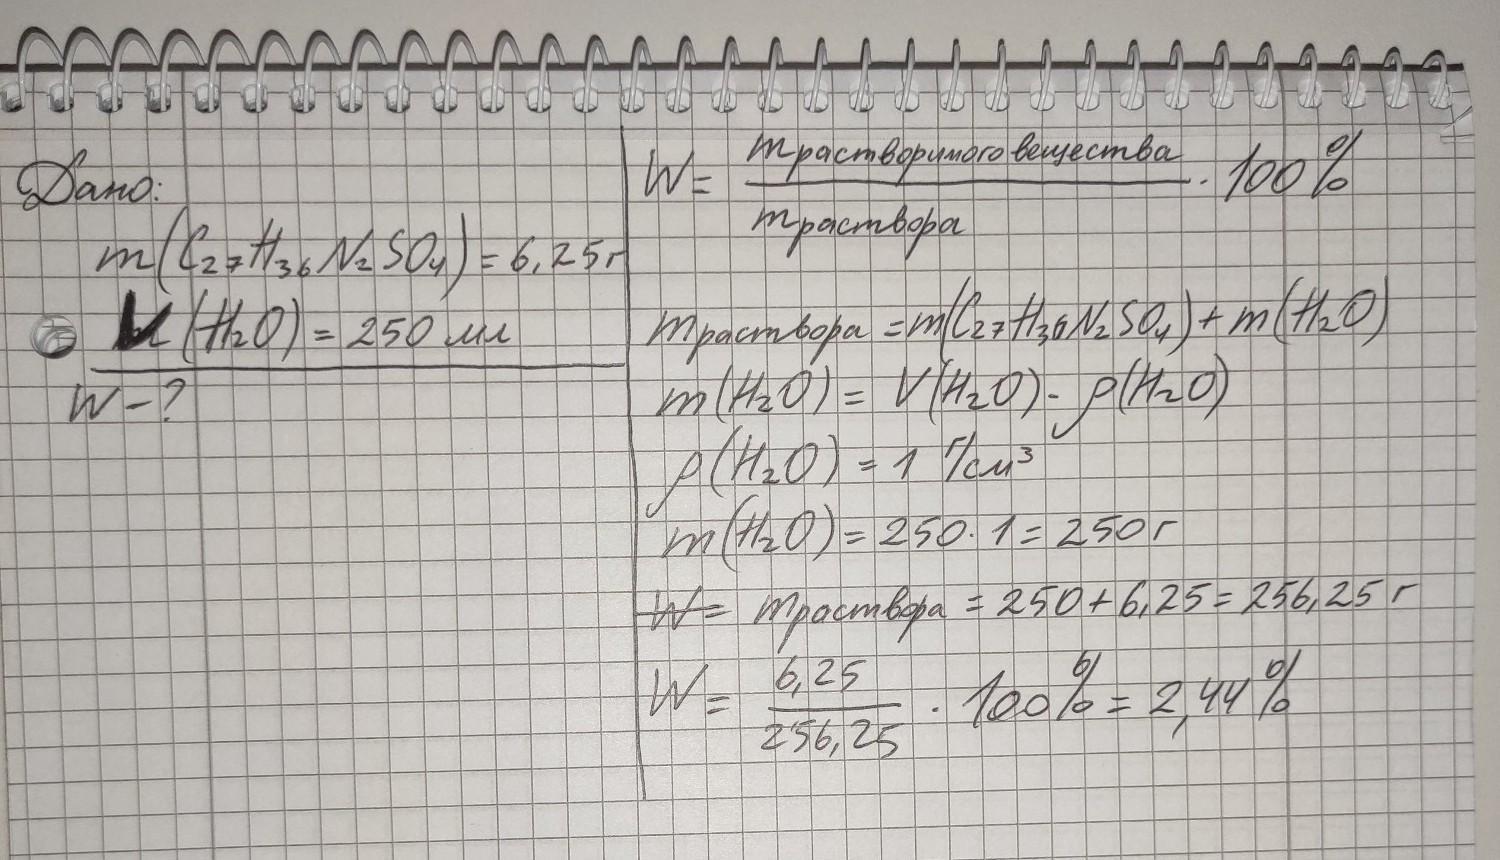 Дано:
m(C₂₇H₃₆N₂SO₄) = 6,25г
V(H₂O) = 250 мл
W – ?
W = m растворимого вещества / m раствора · 100%
m раствора = m(C₂₇H₃₆N₂SO₄) + m(H₂O)
m(H₂O) = V(H₂O) · ρ(H₂O)
ρ(H₂O) = 1 г/см³
m(H₂O) = 250 · 1 = 250 г
W = m раствора = 250 + 6,25 = 256,25 г
W = 6,25 / 256,25 · 100% = 2,44%